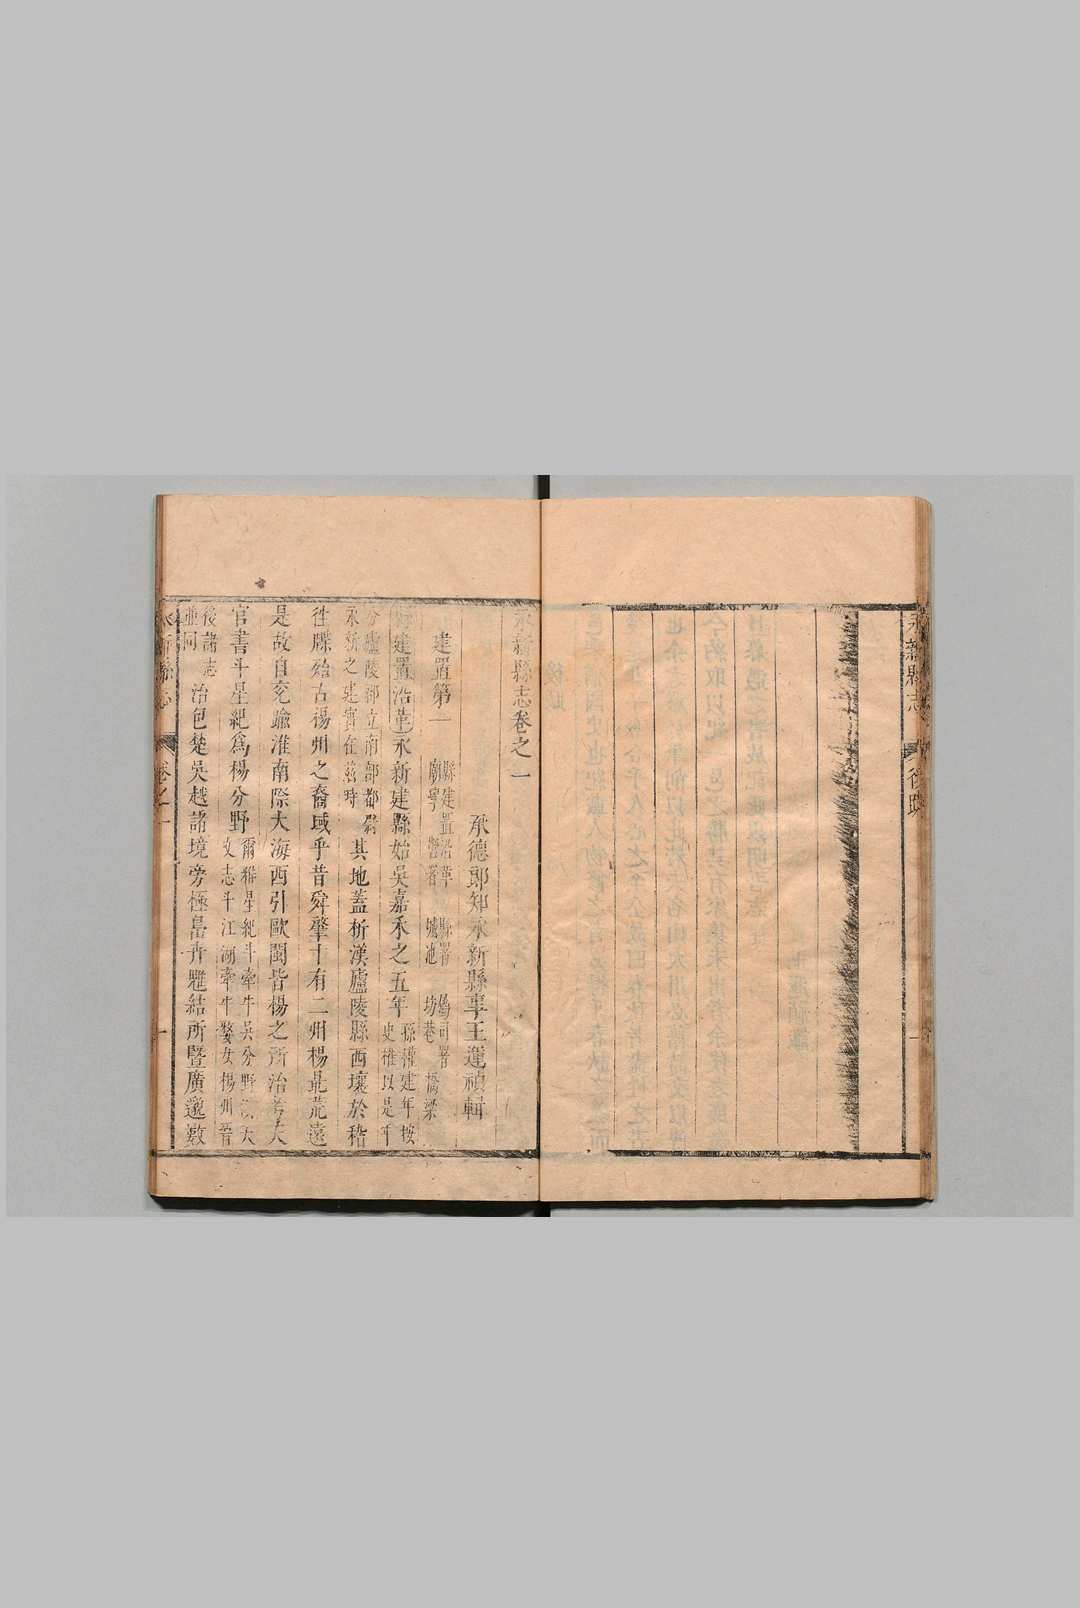 永新縣志
後跋
一
永新縣志卷之一
承德郎知永新縣事王運禎輯
建置第一
縣建置沿革 縣署 屬司署
營署 城池 坊巷 橋梁
縣建置沿革永新建縣始吳嘉禾之五年
孫權建年按
史權以是年
分廬陵郡立南部都尉
永新之建實在茲時
其地蓋析漢廬陵縣西壤於稽
往牒殆古楊州之裔域乎昔舜肇十有二州楊最荒遠
是故自兗踰淮南際大海西引歐閩皆楊之所治
官書斗星紀為楊分野
爾雅星紀斗牽牛吳分野
文志斗江湖牽牛婺女楊州晉
後諸志
並同
治包楚吳越諸境旁極島卉雕結所暨廣邈數
永新縣志
卷之一
一